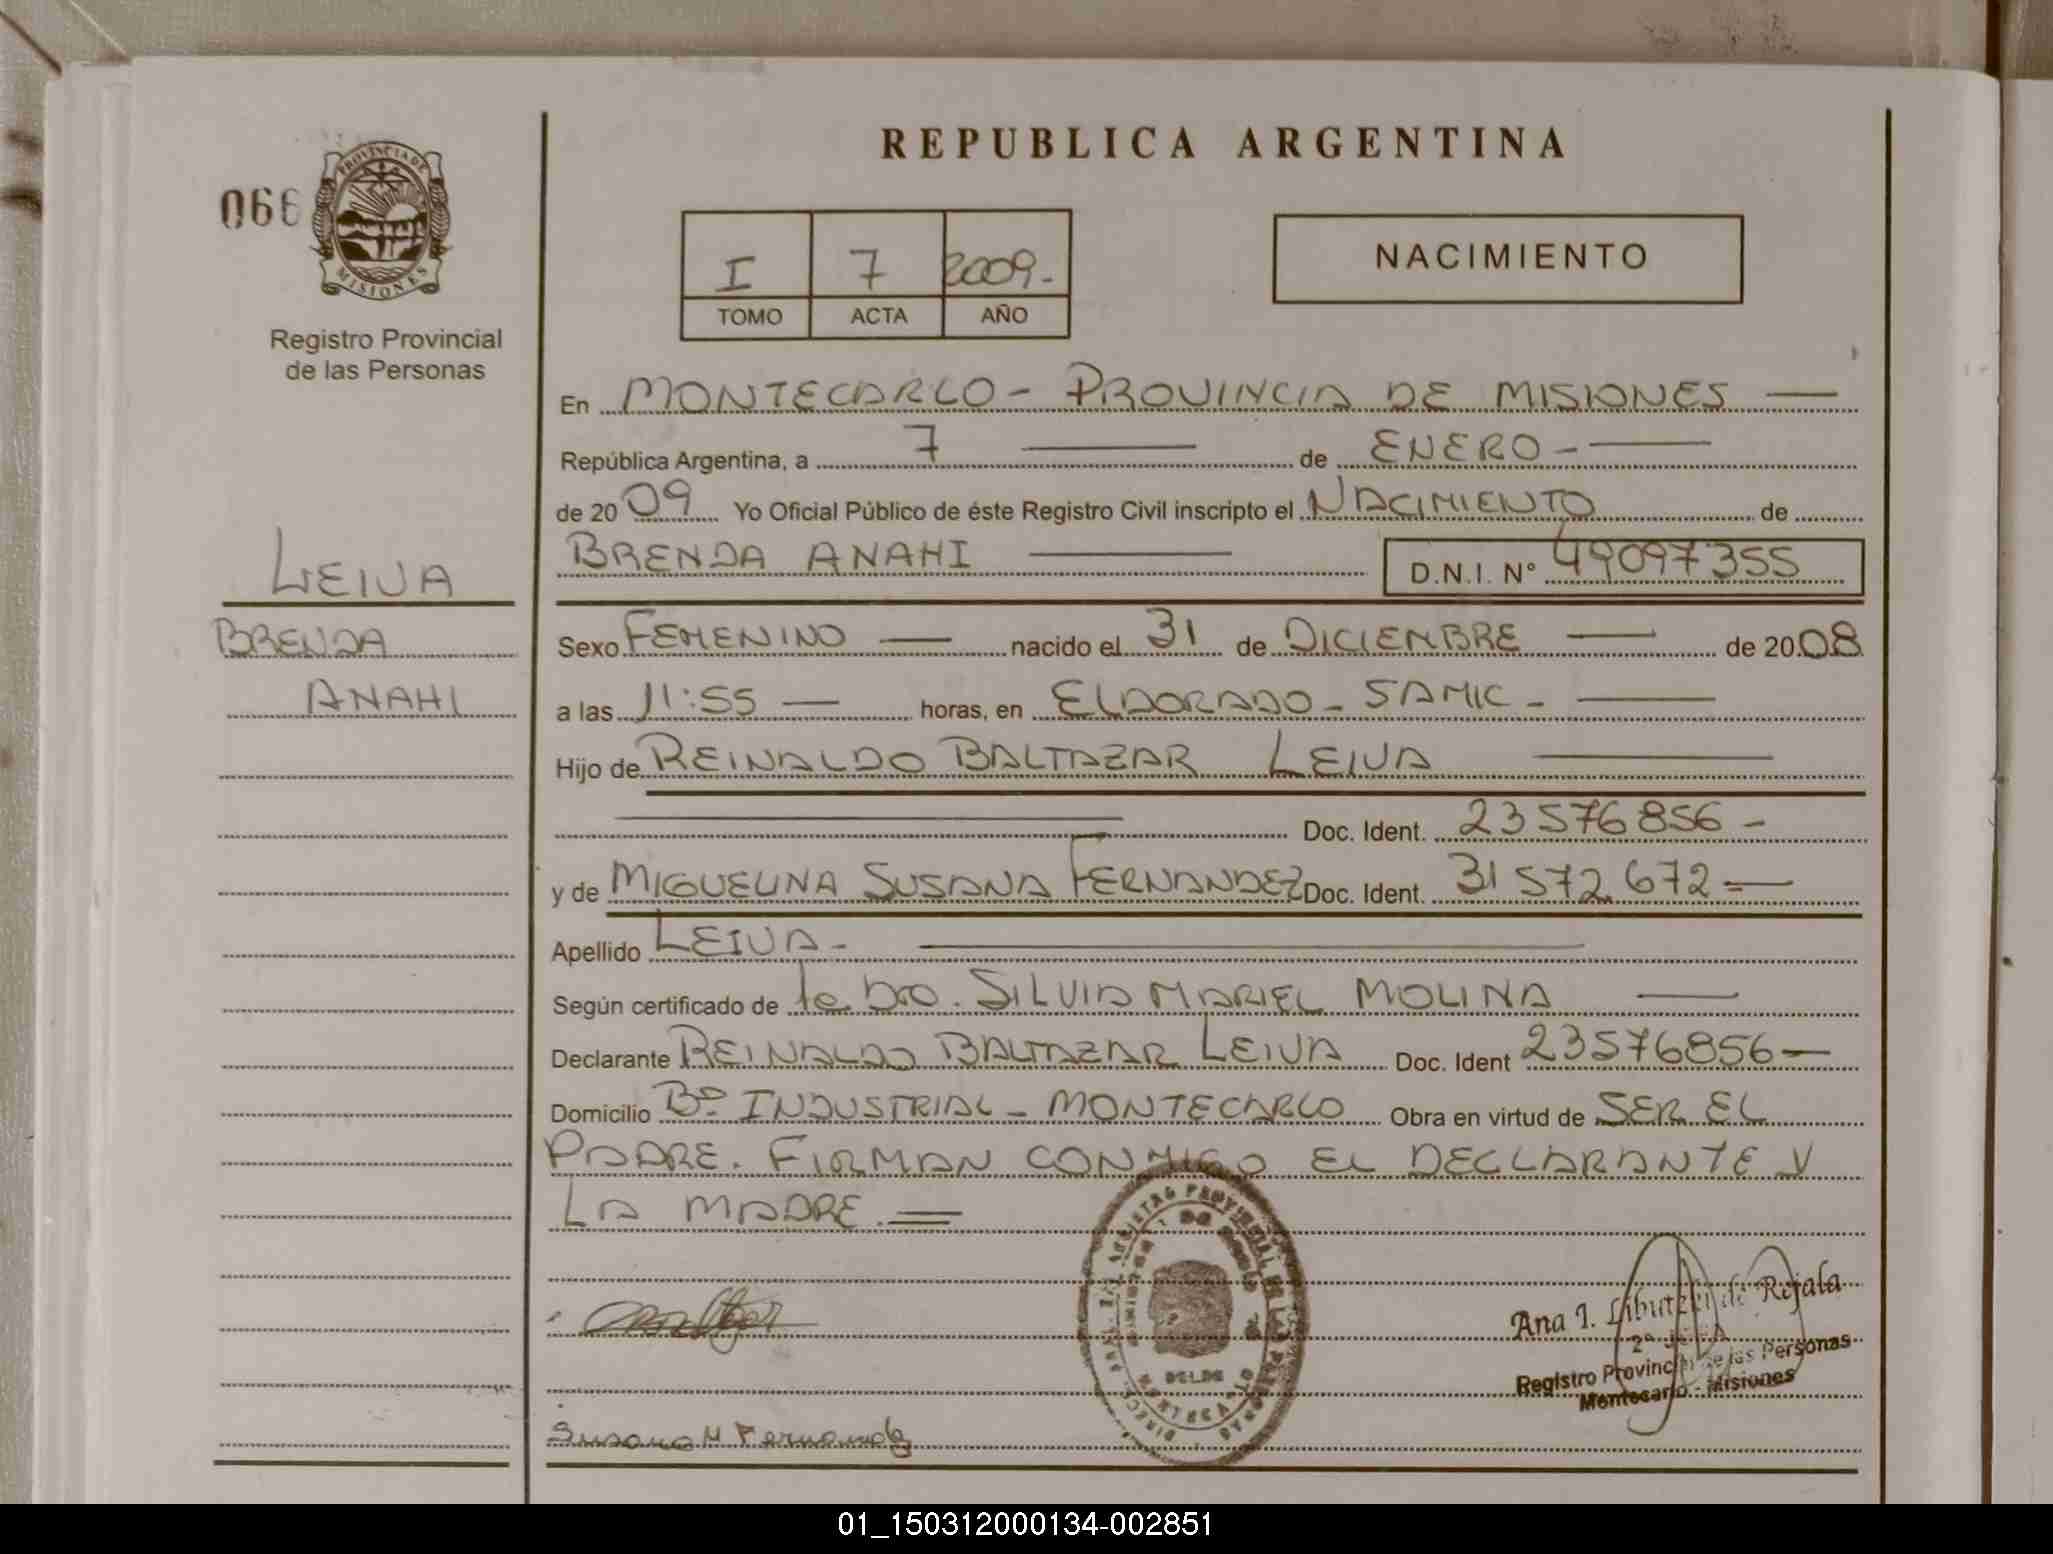 REPUBLICA ARGENTINA
066
PROVINCIA DE
MISIONES
Registro Provincial
de las Personas
I 7 2009.-
TOMO ACTA AÑO
NACIMIENTO
LEIVA
BRENDA
ANAHI
En MONTECARLO - PROVINCIA DE MISIONES —
República Argentina, a 7 — de ENERO - —
de 2009 Yo Oficial Público de éste Registro Civil inscripto el NACIMIENTO de
BRENDA ANAHI — D.N.I. N° 49097355
Sexo FEMENINO — nacido el 31 de DICIEMBRE — de 2008
a las 11:55 — horas, en ELDORADO - SAMIC - —
Hijo de REINALDO BALTAZAR LEIVA —
— Doc. Ident. 23576856 -
y de MIGUELINA SUSANA FERNANDEZ Doc. Ident. 31572672 = —
Apellido LEIVA - —
Según certificado de SILVIA MARIEL MOLINA —
Declarante REINALDO BALTAZAR LEIVA Doc. Ident 23576856 —
Domicilio Bº INDUSTRIAL - MONTECARLO Obra en virtud de SER EL
PADRE. FIRMAN CONMIGO EL DECLARANTE Y
LA MADRE. =
Ana I. de Rejala
Registro Provincial de las Personas
Montecarlo - Misiones
Susana M Fernandez
01_150312000134-002851